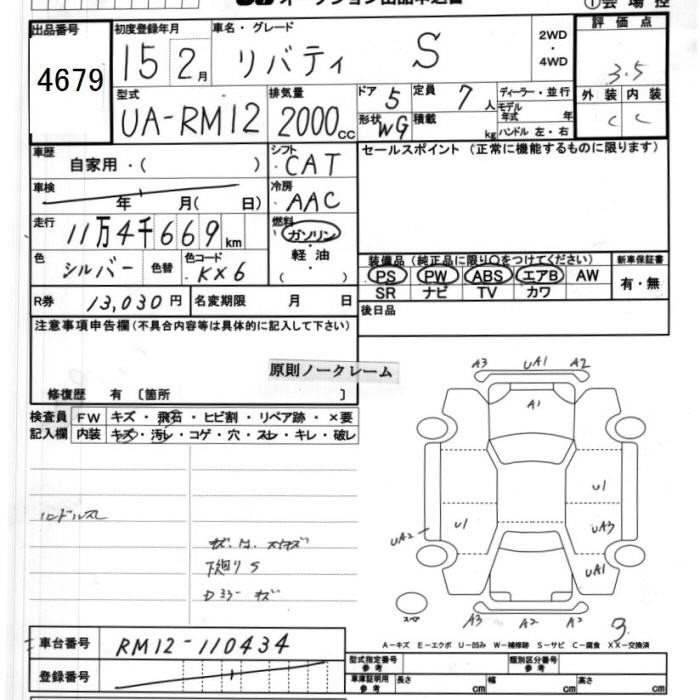 オークション出品申込書
①会場控
出品番号 初度登録年月 車名・グレード 2WD・4WD 評価点
4679
15 2月 リバティ S 3.5
型式 排気量 ドア 5 定員 7人 ディーラー・並行 外装 内装
UA-RM12 2000cc 形状 WG 積載 kg モデル年式 年 C C
ハンドル 左・右
車歴 自家用・( ) シフト ・CAT セールスポイント(正常に機能するものに限ります)
車検 年 月( 日) 冷房 ・AAC
走行 11万4千669km 燃料 ガソリン・軽油・( )
色 シルバー 色替 色コード KX6
装備品(純正品に限り○をつけてください) 新車保証書
PS PW ABS エアB AW 有・無
SR ナビ TV カワ
R券 13,030円 名変期限 月 日 後日品
注意事項申告欄(不具合内容等は具体的に記入して下さい)
原則ノークレーム
修復歴 有 〔箇所 〕
検査員記入欄 FW キズ・飛石・ヒビ割・リペア跡・×要
内装 キズ・汚レ・コゲ・穴・スレ・キレ・破レ
ハンドルスレ
下廻りS
Dミラーキズ
A3 UA1 A2
A1
U1
U1
UA2 UA3
UA1
スペア A3 A2 A2 3
A-キズ E-エクボ U-凹み W-補修跡 S-サビ C-腐食 XX-交換済
車台番号 RM12-110434
型式指定番号 参考 類別区分番号 参考
登録番号
車庫証明用 参考 長さ cm 幅 cm 高さ cm